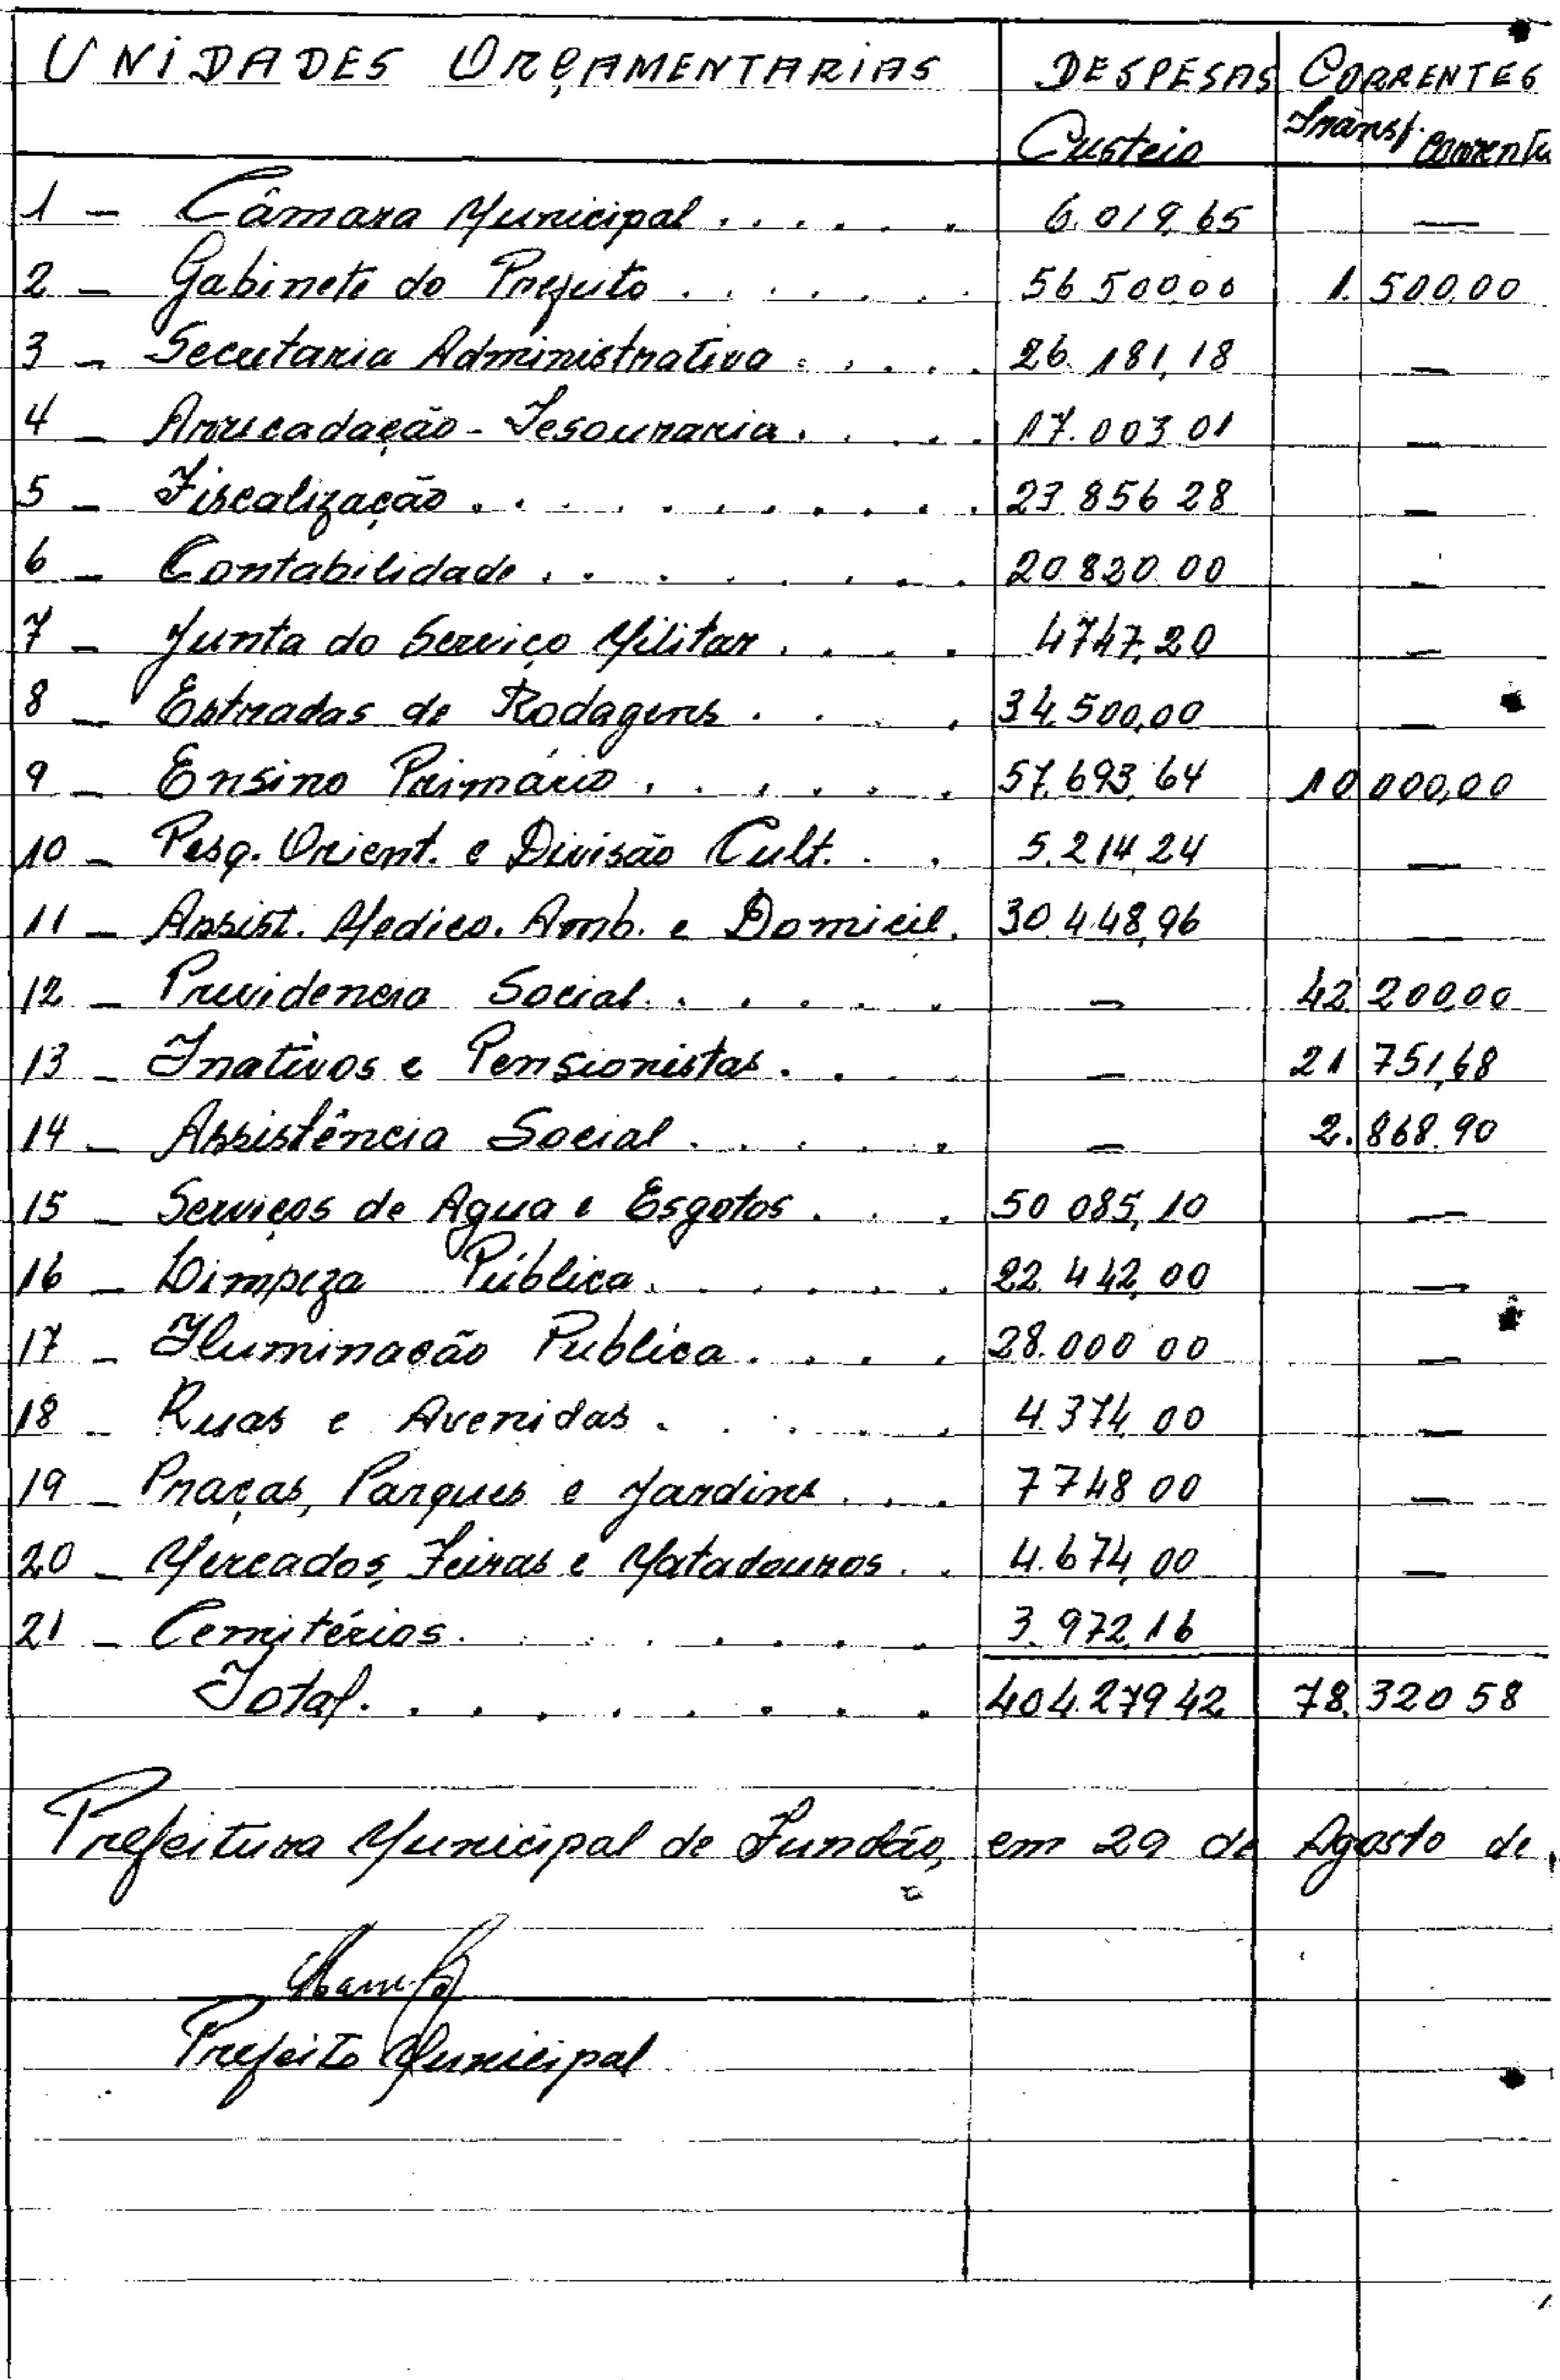 UNIDADES ORÇAMENTARIAS DESPESAS CORRENTES
Custeio Transf. Corrente
1 - Câmara Municipal . . . . . 6.019,65 —
2 - Gabinete do Prefeito . . . . . . 56 500,00 1.500,00
3 - Secretaria Administrativa . . . . . 26.181,18 —
4 - Arrecadação - Tesouraria . . . . . 17.003 01 —
5 - Fiscalização . . . . . . . . . 23 856 28 —
6 - Contabilidade . . . . . . . 20 820 00 —
7 - Junta do Serviço Militar . . . . 4747,20 —
8 - Estradas de Rodagens . . . . 34.500,00 —
9 - Ensino Primário . . . . . . 57.693,64 10 000,00
10 - Pesq. Orient. e Divisão Cult. . . 5.214,24 —
11 - Assist. Medico. Amb. e Domicil. 30.448,96 —
12 - Previdencia Social . . . . . — 42 200,00
13 - Inativos e Pensionistas . . . — 21 751,68
14 - Assistência Social . . . . . — 2.868.90
15 - Serviços de Agua e Esgotos . . . 50 085,10 —
16 - Limpeza Pública . . . . . 22.442,00 —
17 - Iluminação Publica . . . . 28.000 00 —
18 - Ruas e Avenidas . . . . . 4.374,00 —
19 - Praças, Parques e Jardins . . . 7 748 00 —
20 - Mercados, Feiras e Matadouros . . 4.674,00 —
21 - Cemitérios . . . . . . . 3.972,16
Total . . . . . . . . 404.279 42 78.320 58
Prefeitura Municipal de Fundão, em 29 de Agosto de
Prefeito Municipal